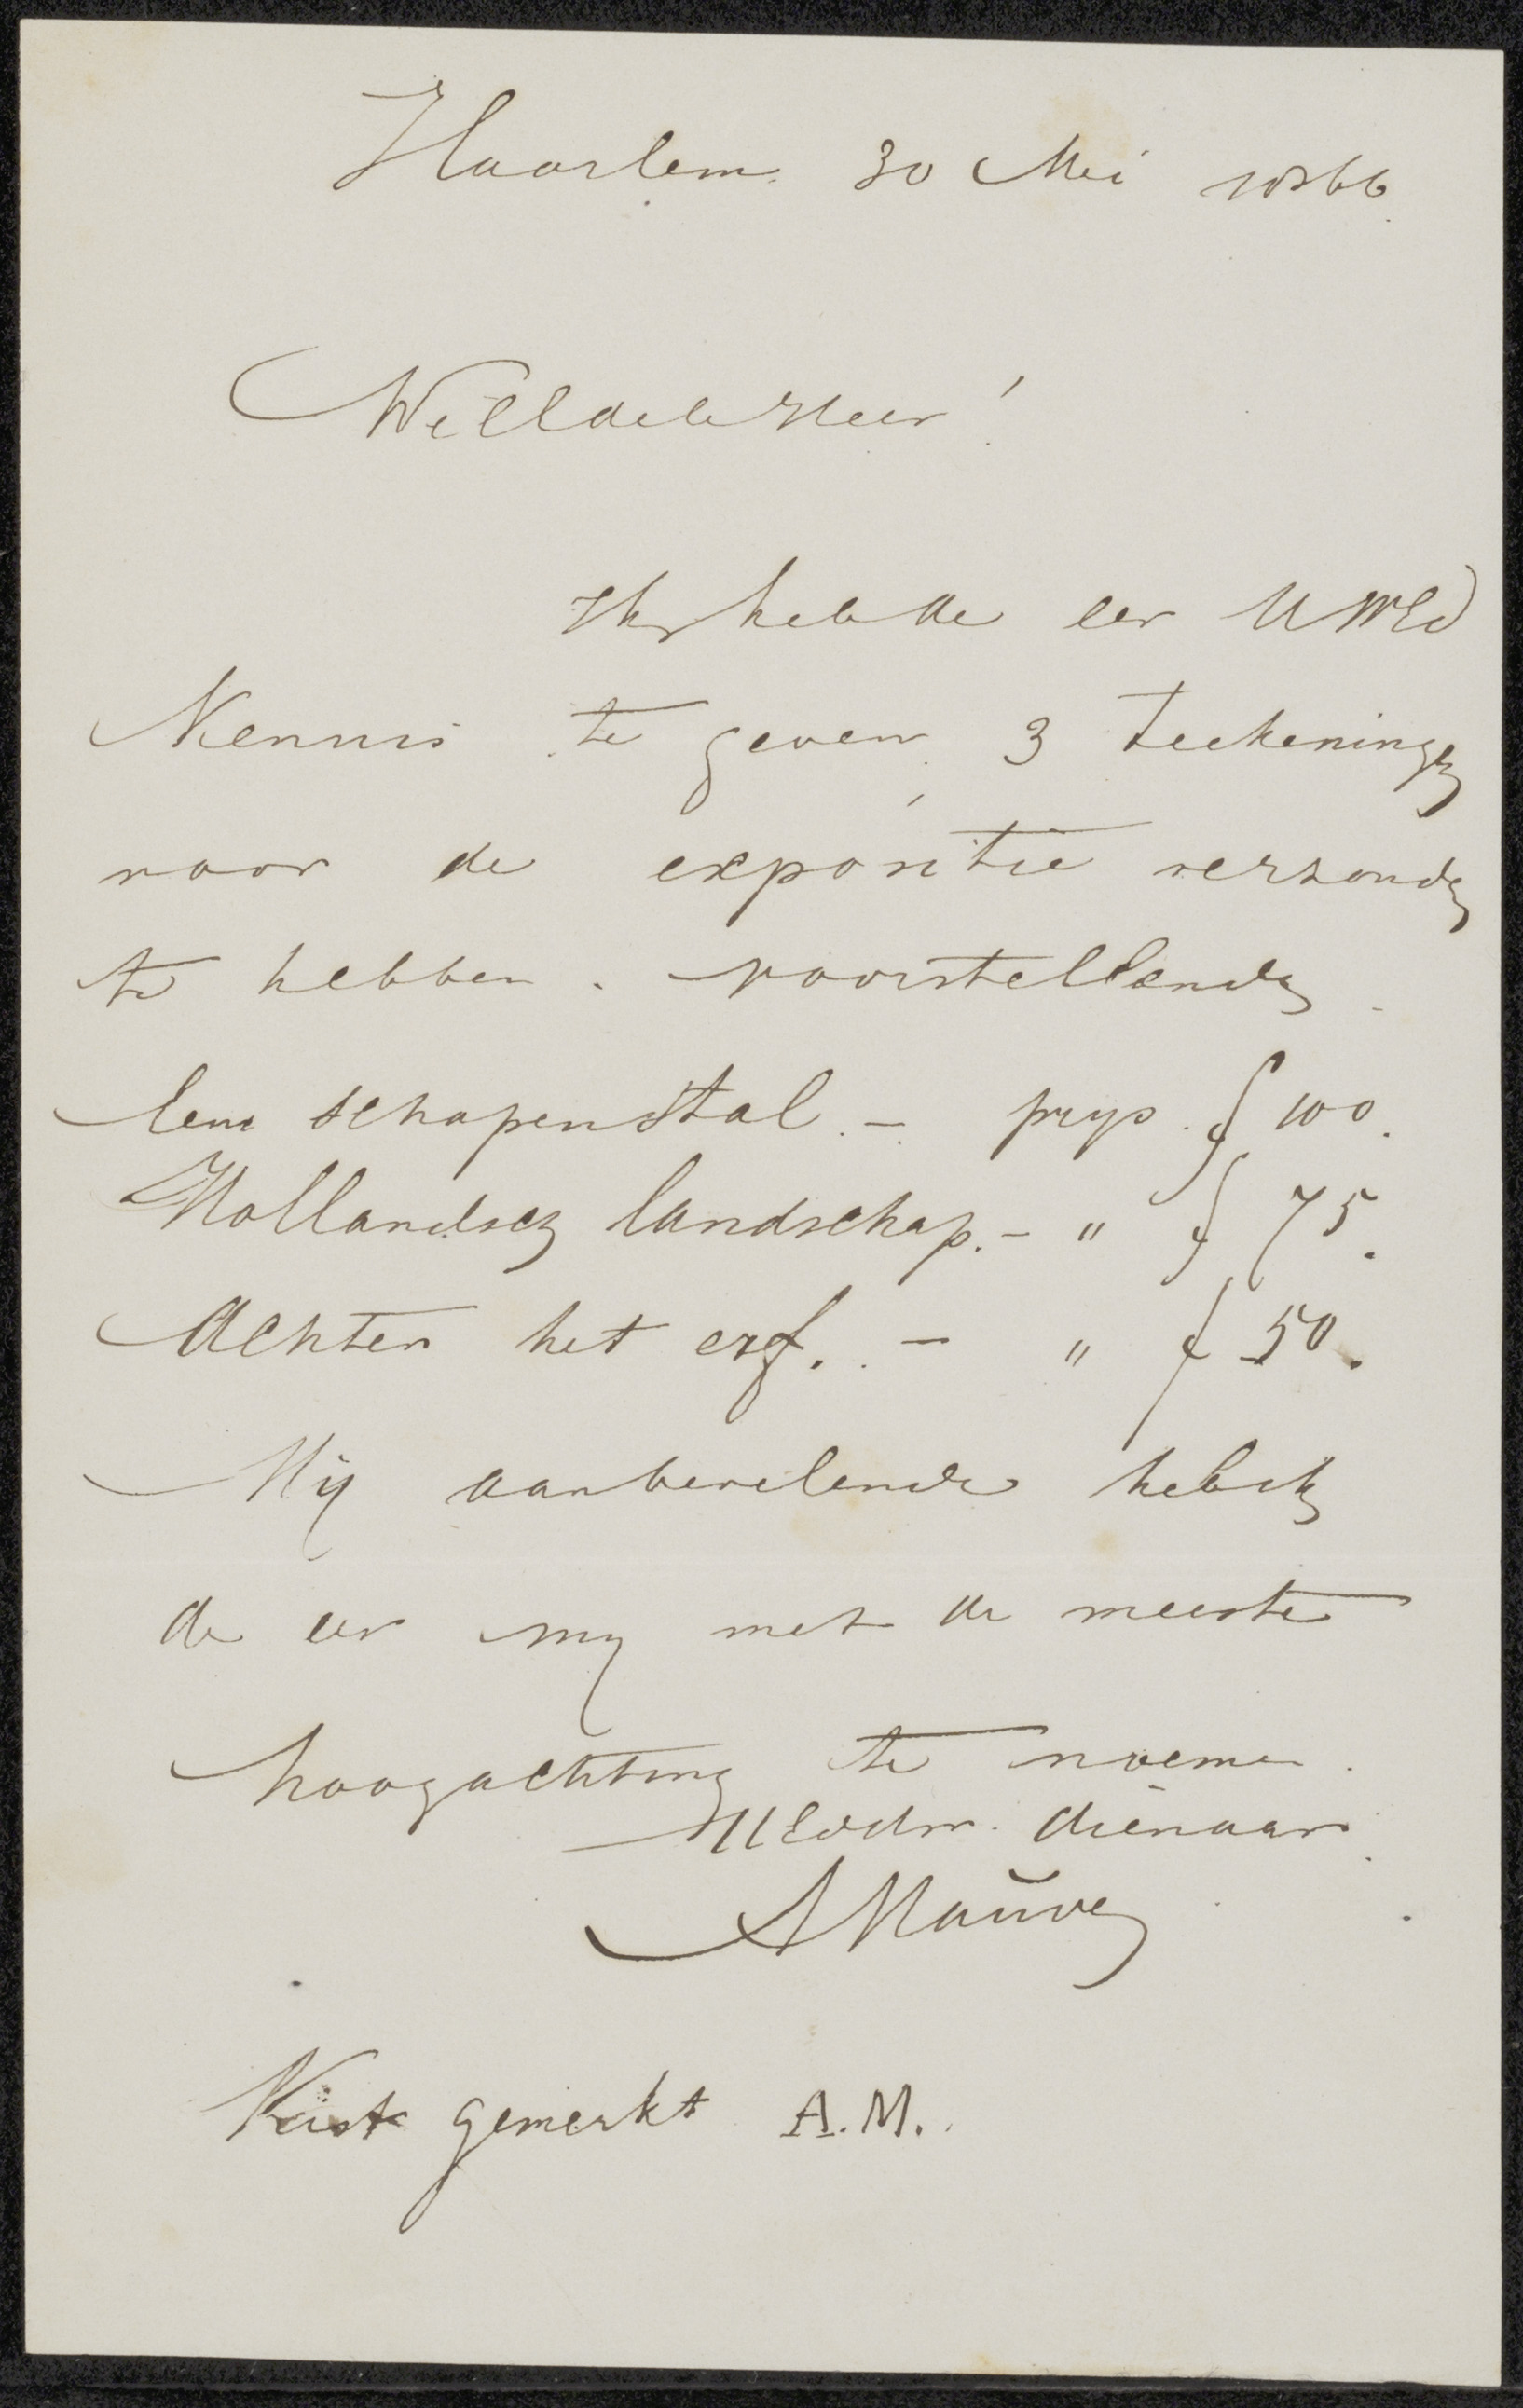 Haarlem 30 Mei 1866
WelEdele Heer!
Ik heb de eer UWEd
Kennis te geven 3 teekeningen
voor de expositie verzonden
te hebben. voorstellende
Een schapenstal. - prys. f 100.
Hollandsch landschap. - " f 75.
Achter het erf. - " f 50.
Mij aanbevelende heb ik
de eer my met de meeste
hoogachting te noemen.
UEddw. dienaar
A Mauve
Kist gemerkt A.M.